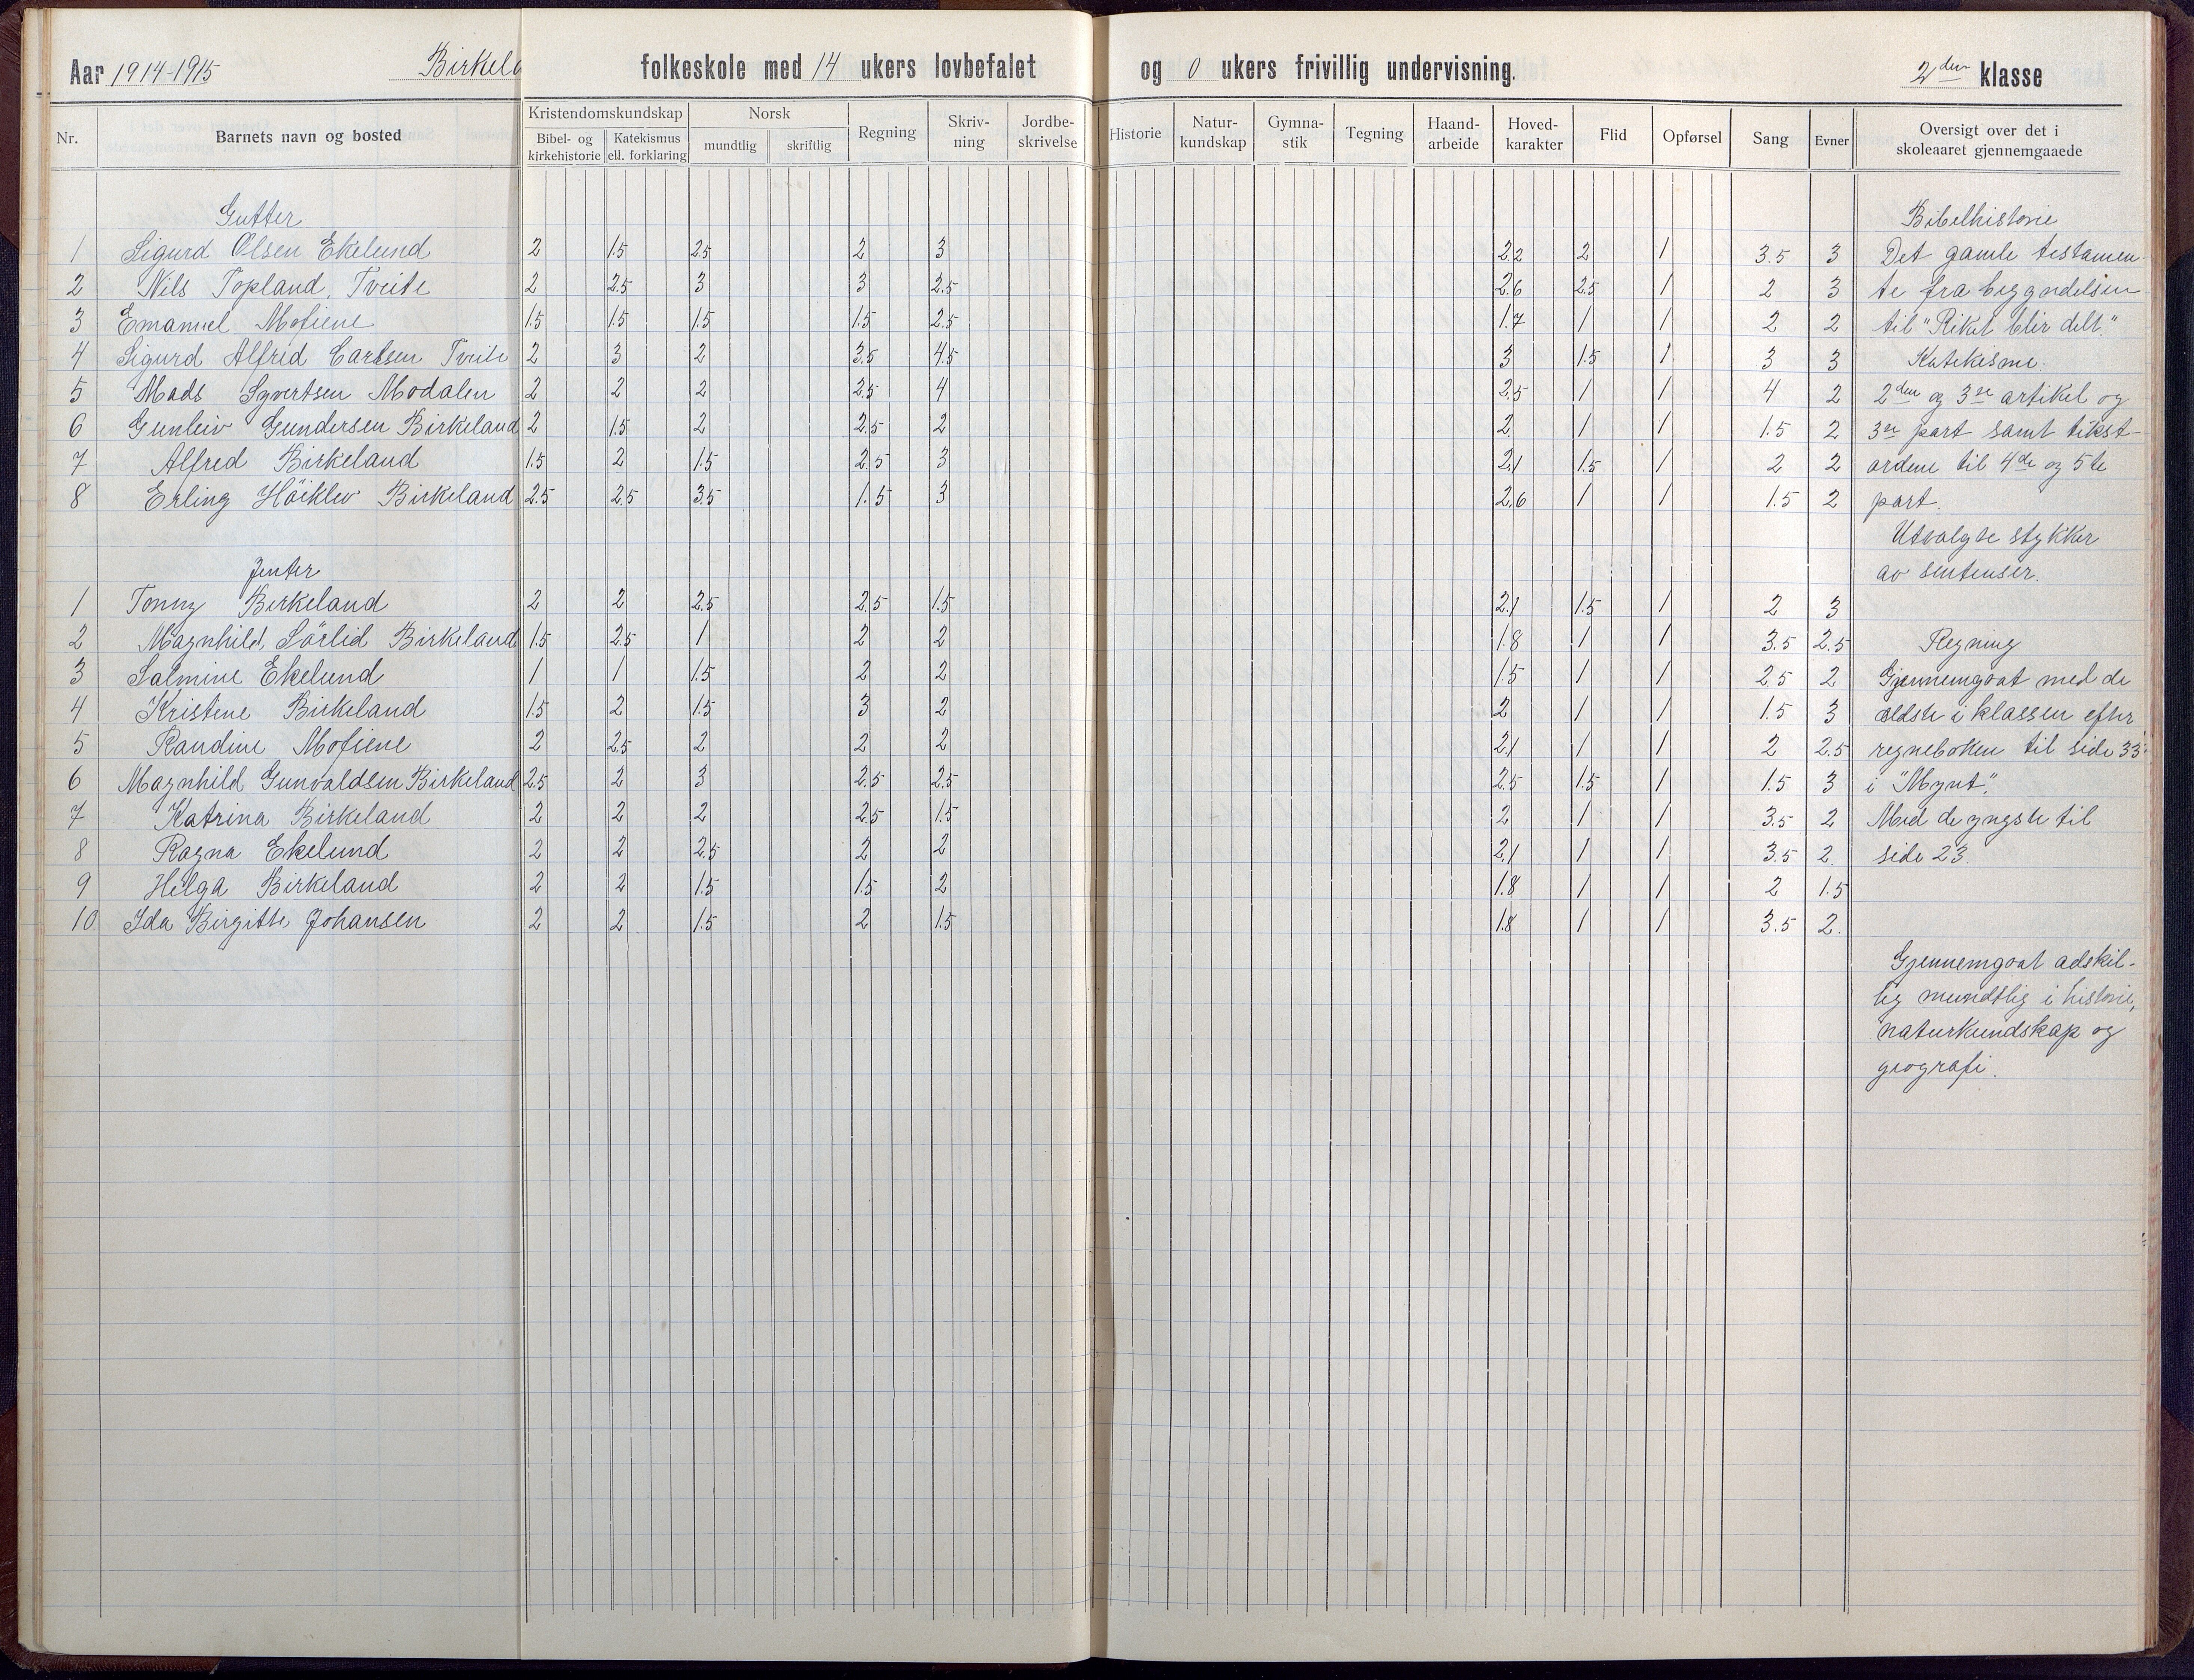 Aar 1914-1915 Birkela folkeskole med 14 ukers lovbefalet og 0 ukers frivillig undervisning. 2den klasse
Nr. Barnets navn og bosted Kristendomskundskap Bibel- og kirkehistorie Katekismus ell. forklaring Norsk mundtlig skriftlig Regning Skriv-ning Jordbe-skrivelse Historie Natur-kundskap Gymna-stik Tegning Haand-arbeide Hoved-karakter Flid Opførsel Sang Evner Oversigt over det i skoleaaret gjennemgaaede
Gutter Bibelhistorie
1 Sigurd Olsen Ekelund 2 1.5 2.5 2 3 2.2 2 1 3.5 3 Det gamle testamen-
2 Nils Topland, Tveite 2 2.5 3 3 2.5 2.6 2.5 1 2 3 te fra begyndelsen
3 Emanuel Mofiene 1.5 1.5 1.5 1.5 2.5 1.7 1 1 2 2 til "Riket blir delt."
4 Sigurd Alfred Carlsen Tveite 2 3 2 3.5 4.5 3 1.5 1 3 3 Katekisme:
5 Mads Syvertsen Modalen 2 2 2 2.5 4 2.5 1 1 4 2 2den og 3die artikel og
6 Gunleiv Gundersen Birkeland 2 1.5 2 2.5 2 2 1 1 1.5 2 3die part samt tekst-
7 Alfred Birkeland 1.5 2 1.5 2.5 3 2,1 1.5 1 2 2 ordene til 4de og 5te
8 Erling Höiklev Birkeland 2.5 2.5 3.5 1.5 3 2,6 1 1 1.5 2 part.
Utvalgte stykker
Jenter av sentenser.
1 Tonny Birkeland 2 2 2.5 2.5 1.5 2.1 1.5 1 2 3
2 Magnhild Sörlid Birkeland 1.5 2.5 1 2 2 1.8 1 1 3.5 2.5 Regning
3 Salmine Ekelund 1 1 1.5 2 2 1.5 1 1 2.5 2 Gjennemgaat med de
4 Kristene Birkeland 1.5 2 1.5 3 2 2 1 1 1.5 3 ældste i klassen efter
5 Randine Mofiene 2 2.5 2 2 2 2.1 1 1 2 2.5 regneboken til side 33
6 Magnhild Gunvaldsen Birkeland 2.5 2 3 2.5 2.5 2.5 1.5 1 1.5 3 i "Mynt".
7 Katrina Birkeland 2 2 2 2.5 1.5 2 1 1 3.5 2 Med de yngste til
8 Ragna Ekelund 2 2 2.5 2 2 2,1 1 1 3.5 2. side 23.
9 Helga Birkeland 2 2 1.5 1.5 2 1.8 1 1 2 1.5
10 Ida Birgitte Johansen 2 2 1.5 2 1.5 1.8 1 1 3.5 2.
Gjennemgaat adskil-
lig mundtlig i historie,
naturkundskap og
geografi.